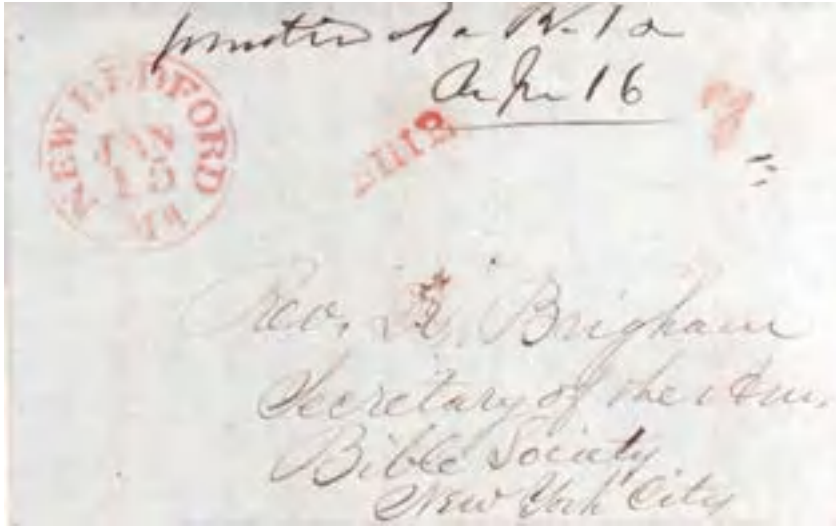 of a
16
NEW BEDFORD
JAN
15
SHIP
Rev. Dr. Brigham
Secretary of the Am.
Bible Society
New York City